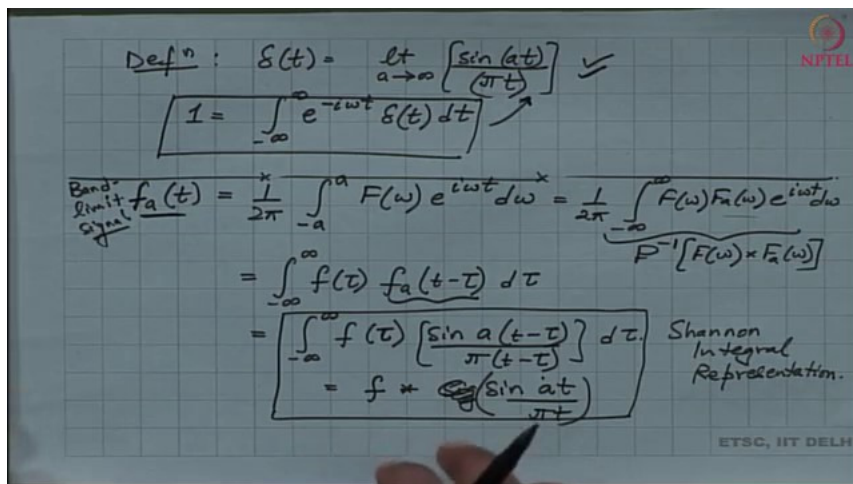 Defn : δ(t) = lt a→∞ [sin(at)/(πt)] ✓
NPTEL
1 = ∫_{-∞}^{∞} e^{-iωt} δ(t) dt
Band-limit signal f_a(t) = 1/2π ∫_{-a}^{a} F(ω) e^{iωt} dω = 1/2π ∫_{-∞}^{∞} F(ω) F_a(ω) e^{iωt} dω
F^{-1}[F(ω) × F_a(ω)]
= ∫_{-∞}^{∞} f(τ) f_a(t-τ) dτ
= ∫_{-∞}^{∞} f(τ) [sin a(t-τ)/π(t-τ)] dτ. Shannon Integral Representation.
= f * (sin at/πt)
ETSC, IIT DELH